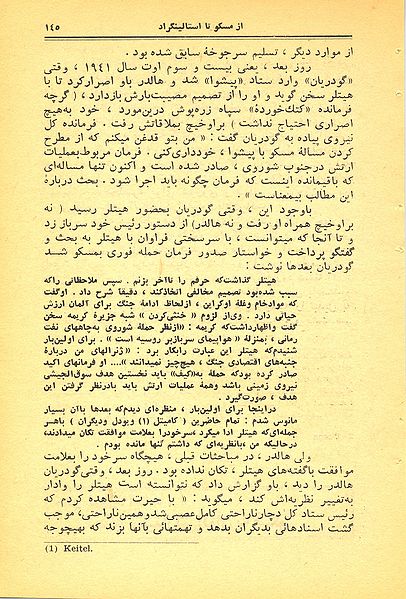 از مسکو تا استالینگراد ۱۴۵
از موارد دیگر ، تسلیم سرجوخهٔ سابق شده بود .
روز بعد ، یعنی بیست و سوم اوت سال ۱۹۴۱ ، وقتی
«گودریان» وارد ستاد «پیشوا» شد و هالدر باو اصرار کرد تا با
هیتلر سخن گوید و او را از تصمیم مصیبت‌بارش بازدارد ، ( گرچه
فرمانده «کتك‌خوردهٔ» سپاه زره‌پوش درین‌مورد ، خود به‌هیچ
اصراری احتیاج نداشت ) براوخیچ بملاقاتش رفت . فرمانده کل
نیروی پیاده به گودریان گفت : « من بتو قدغن میکنم که از مطرح
کردن مسألهٔ مسکو با پیشوا ، خودداری‌کنی . فرمان مربوط‌بعملیات
ارتش درجنوب شوروی ، صادر شده است و اکنون تنها مساله‌ای
که باقیمانده اینست که فرمان چگونه باید اجرا شود . بحث دربارهٔ
این مطالب بیمعناست » .
باوجود این ، وقتی گودریان بحضور هیتلر رسید ( نه
براوخیچ همراه او رفت و نه هالدر) از دستور رئیس خود سرباز زد
و تا آنجا که میتوانست ، با سرسختی فراوان با هیتلر به بحث و
گفتگو پرداخت و خواستار صدور فرمان حمله فوری بمسکو شد
گودریان بعدها نوشت :
هیتلر گذاشت‌که حرفم را تاآخر بزنم . سپس ملاحظاتی راکه
سبب شده‌بود تصمیم مخالفی اتخاذکند ، دقیقاً شرح داد . اوگفت
که موادخام وغلهٔ اوکراین ، ازلحاظ ادامهٔ جنگ برای آلمان ارزش
حیاتی دارد . وی‌از لزوم « خنثی‌کردن » شبه جزیرهٔ کریمه سخن
گفت واظهارداشت‌که کریمه : «ازنظر حملهٔ شوروی به‌چاههای نفت
رمانی ، بمنزلهٔ « هواپیمای سربازبر روسیه است » . برای اولین‌بار
شنیدم‌که هیتلر این عبارت رابکار برد : «ژنرالهای من دربارهٔ
جنبه‌های اقتصادی جنگ ، هیچ‌چیز نمیدانند »... او فرمانهای اکید
صادر کرده بودکه حملهٔ به«کیف» باید نخستین هدف سوق‌الجیشی
نیروی زمینی باشد وهمهٔ عملیات ارتش باید بادرنظر گرفتن این
هدف ، صورت‌گیرد .
دراینجا برای اولین‌بار ، منظره‌ای دیدم‌که بعدها باآن بسیار
مانوس شدم : تمام حاضرین ( کایتل (۱) ویودل ودیگران ) باهر
جمله‌ای‌که هیتلر ادا میکرد ،سرخودرا بعلامت موافقت تکان میدادند،
درحالیکه من ،بانظریه‌ای که داشتم تنها مانده بودم .
ولی هالدر ، در مباحثات قبلی ، هیچگاه سرخود را بعلامت
موافقت باگفته‌های هیتلر ، تکان نداده بود . روز بعد ، وقتی‌گودریان
هالدر را دید ، باو گزارش داد که نتوانسته است هیتلر را وادار
به‌تغییر نظریه‌اش کند ، میگوید : « با حیرت مشاهده کردم که
رئیس ستاد کل دچارناراحتی کامل‌عصبی‌شدوهمین‌ناراحتی، موجب
گشت اسنادهائی بدیگران بدهد و تهمتهائی بآنها بزند که بهیچوجه
(1) Keitel.